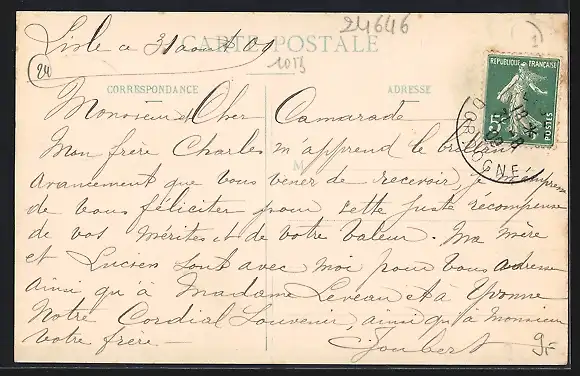 24646
Lisle ce 31 août 09
CARTE POSTALE
24
1013
CORRESPONDANCE
ADRESSE
REPUBLIQUE FRANÇAISE
5c
POSTES
DORDOGNE
Monsieur et Cher Camarade
Mon frère Charles m'apprend le brillant
avancement que vous venez de recevoir, je m'empresse
de vous féliciter pour cette juste recompense
de vos mérites et de votre valeur. Ma mère
et Lucien sont avec moi pour vous adresser
ainsi qu'à Madame Leveau et à Yvonne
Notre Cordial Souvenir, ainsi qu'à Monsieur
votre frère -
Joubert
9.-